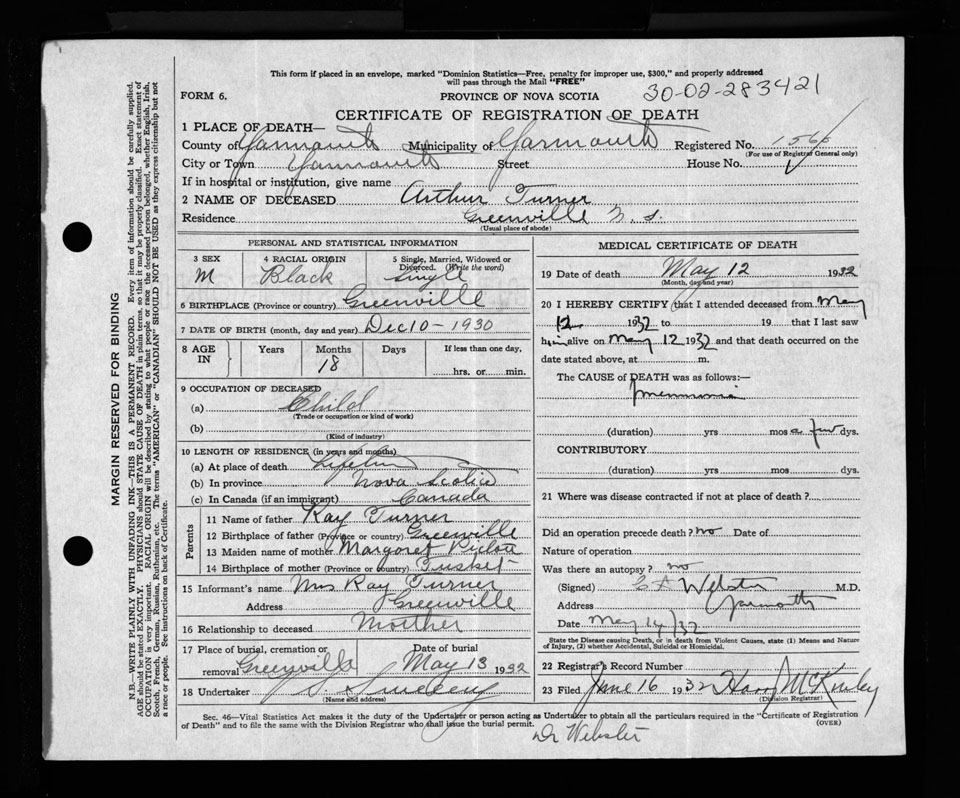 This form if placed in an envelope, marked "Dominion Statistics—Free, penalty for improper use, $300," and properly addressed
will pass through the Mail "FREE"
FORM 6.
PROVINCE OF NOVA SCOTIA
30-02-283421
CERTIFICATE OF REGISTRATION OF DEATH
1 PLACE OF DEATH—
County of Yarmouth Municipality of Yarmouth Registered No.
(For use of Registrar General only)
City or Town Yarmouth Street House No.
If in hospital or institution, give name
2 NAME OF DECEASED Arthur Turner
Residence Greenville N. S.
(Usual place of abode)
PERSONAL AND STATISTICAL INFORMATION
3 SEX
M
4 RACIAL ORIGIN
Black
5 Single, Married, Widowed or
Divorced. (Write the word)
Single
6 BIRTHPLACE (Province or country) Greenville
7 DATE OF BIRTH (month, day and year) Dec 10 - 1930
8 AGE
IN
Years
Months
18
Days
If less than one day,
hrs. or min.
9 OCCUPATION OF DECEASED
(a) Child
(Trade or occupation or kind of work)
(b)
(Kind of industry)
10 LENGTH OF RESIDENCE (in years and months)
(a) At place of death Lifetime
(b) In province Nova Scotia
(c) In Canada (if an immigrant) Canada
Parents
11 Name of father Ray Turner
12 Birthplace of father (Province or country) Greenville
13 Maiden name of mother Margaret
14 Birthplace of mother (Province or Country) Tusket
15 Informant's name Mrs Ray Turner
Address Greenville
16 Relationship to deceased Mother
17 Place of burial, cremation or
removal Greenville
Date of burial
May 13 1932
18 Undertaker
(Name and address)
MEDICAL CERTIFICATE OF DEATH
19 Date of death May 12 1932
(Month, day and year)
20 I HEREBY CERTIFY that I attended deceased from May
12 1932 to 19 that I last saw
him alive on May 12 1932 and that death occurred on the
date stated above, at m.
The CAUSE of DEATH was as follows:—
pneumonia
(duration) yrs mos a few dys.
CONTRIBUTORY
(duration) yrs mos dys.
21 Where was disease contracted if not at place of death?
Did an operation precede death? no Date of
Nature of operation
Was there an autopsy? no
(Signed) Webster M.D.
Address Yarmouth
Date May 14/32
State the Disease causing Death, or in death from Violent Causes, state (1) Means and Nature
of Injury, (2) whether Accidental, Suicidal or Homicidal.
22 Registrar's Record Number
23 Filed June 16 1932 Harry McKinley
(Division Registrar)
Sec. 46—Vital Statistics Act makes it the duty of the Undertaker or person acting as Undertaker to obtain all the particulars required in the "Certificate of Registration
of Death" and to file the same with the Division Registrar who shall issue the burial permit.
(OVER)
Dr Webster
MARGIN RESERVED FOR BINDING
N.B.—WRITE PLAINLY WITH UNFADING INK—THIS IS A PERMANENT RECORD. Every item of information should be carefully supplied.
AGE should be stated EXACTLY. PHYSICIANS should STATE CAUSE OF DEATH in plain terms, so that it may be properly classified. Exact statement of
OCCUPATION is very important. RACIAL ORIGIN will be described by stating to what people or race the deceased person belonged, whether English, Irish,
Scotch, French, German, Russian, Ruthenian, etc. The terms "AMERICAN" or "CANADIAN" SHOULD NOT BE USED as they express citizenship but not
a race or people. See instructions on back of Certificate.